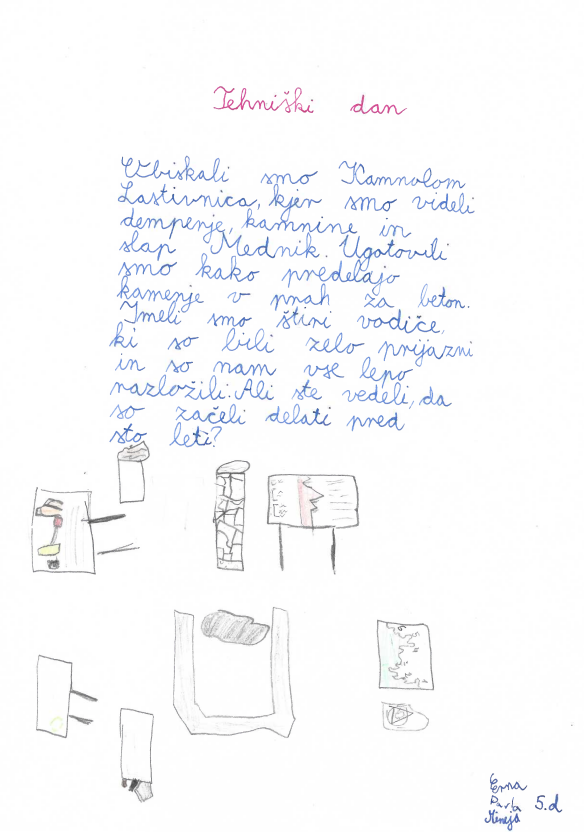 Tehniški dan
Obiskali smo Kamnolom
Lastivnica, kjer smo videli
dempenje, kamnine in
slap Mednik. Ugotovili
smo kako predelajo
kamenje v prah za beton.
Imeli smo štiri vodiče,
ki so bili zelo prijazni
in so nam vse lepo
razložili. Ali ste vedeli, da
so začeli delati pred
sto leti?
Erna
5.d
Mineja